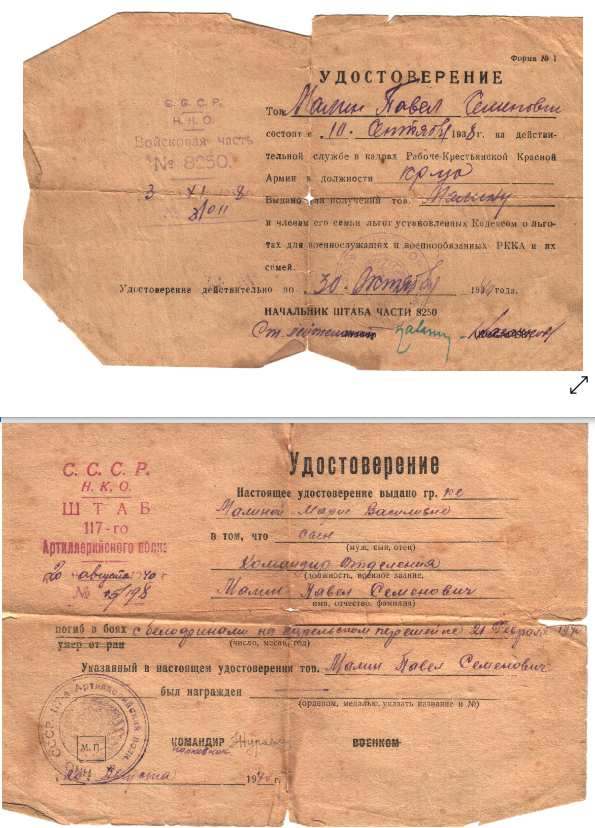 Форма № 1
УДОСТОВЕРЕНИЕ
С. С. С. Р.
Н. К. О.
Войсковая часть
№ 8250.
3 XI 8
№ 31011
Тов. Малин Павел Семенович
состоит с „10. Сентября 1938 г. на действи-
тельной службе в кадрах Рабоче-Крестьянской Красной
Армии в должности кр-ца
Выдано для получения тов. Малину
и членам его семьи льгот установленных Кодексом о льго-
тах для военнослужащих и военнообязанных РККА и их
семей.
Удостоверение действительно по „30. Октября 1940 года.
НАЧАЛЬНИК ШТАБА ЧАСТИ 8250
Ст. лейтенант
С. С. С. Р.
Н. К. О.
ШТАБ
117-го
Артиллерийского полка
20 августа 1940 г
№ 15/198
Удостоверение
Настоящее удостоверение выдано гр. ке
Малиной Марие Васильевне
в том, что сын
(муж, сын, отец)
Командир Отделения
(должность, военное звание,
Малин Павел Семенович
имя, отчество, фамилия)
погиб в боях с белофинами на карельском перешейке 21 Февраля 1940
умер от ран
(число, месяц, год)
Указанный в настоящем удостоверении тов. Малин Павел Семенович
был награжден
(орденом, медалью, указать название и №)
СССР 117-й Артиллерийский полк
М. П.
КОМАНДИР
полковник
ВОЕНКОМ
„20“ Августа 1940 г.